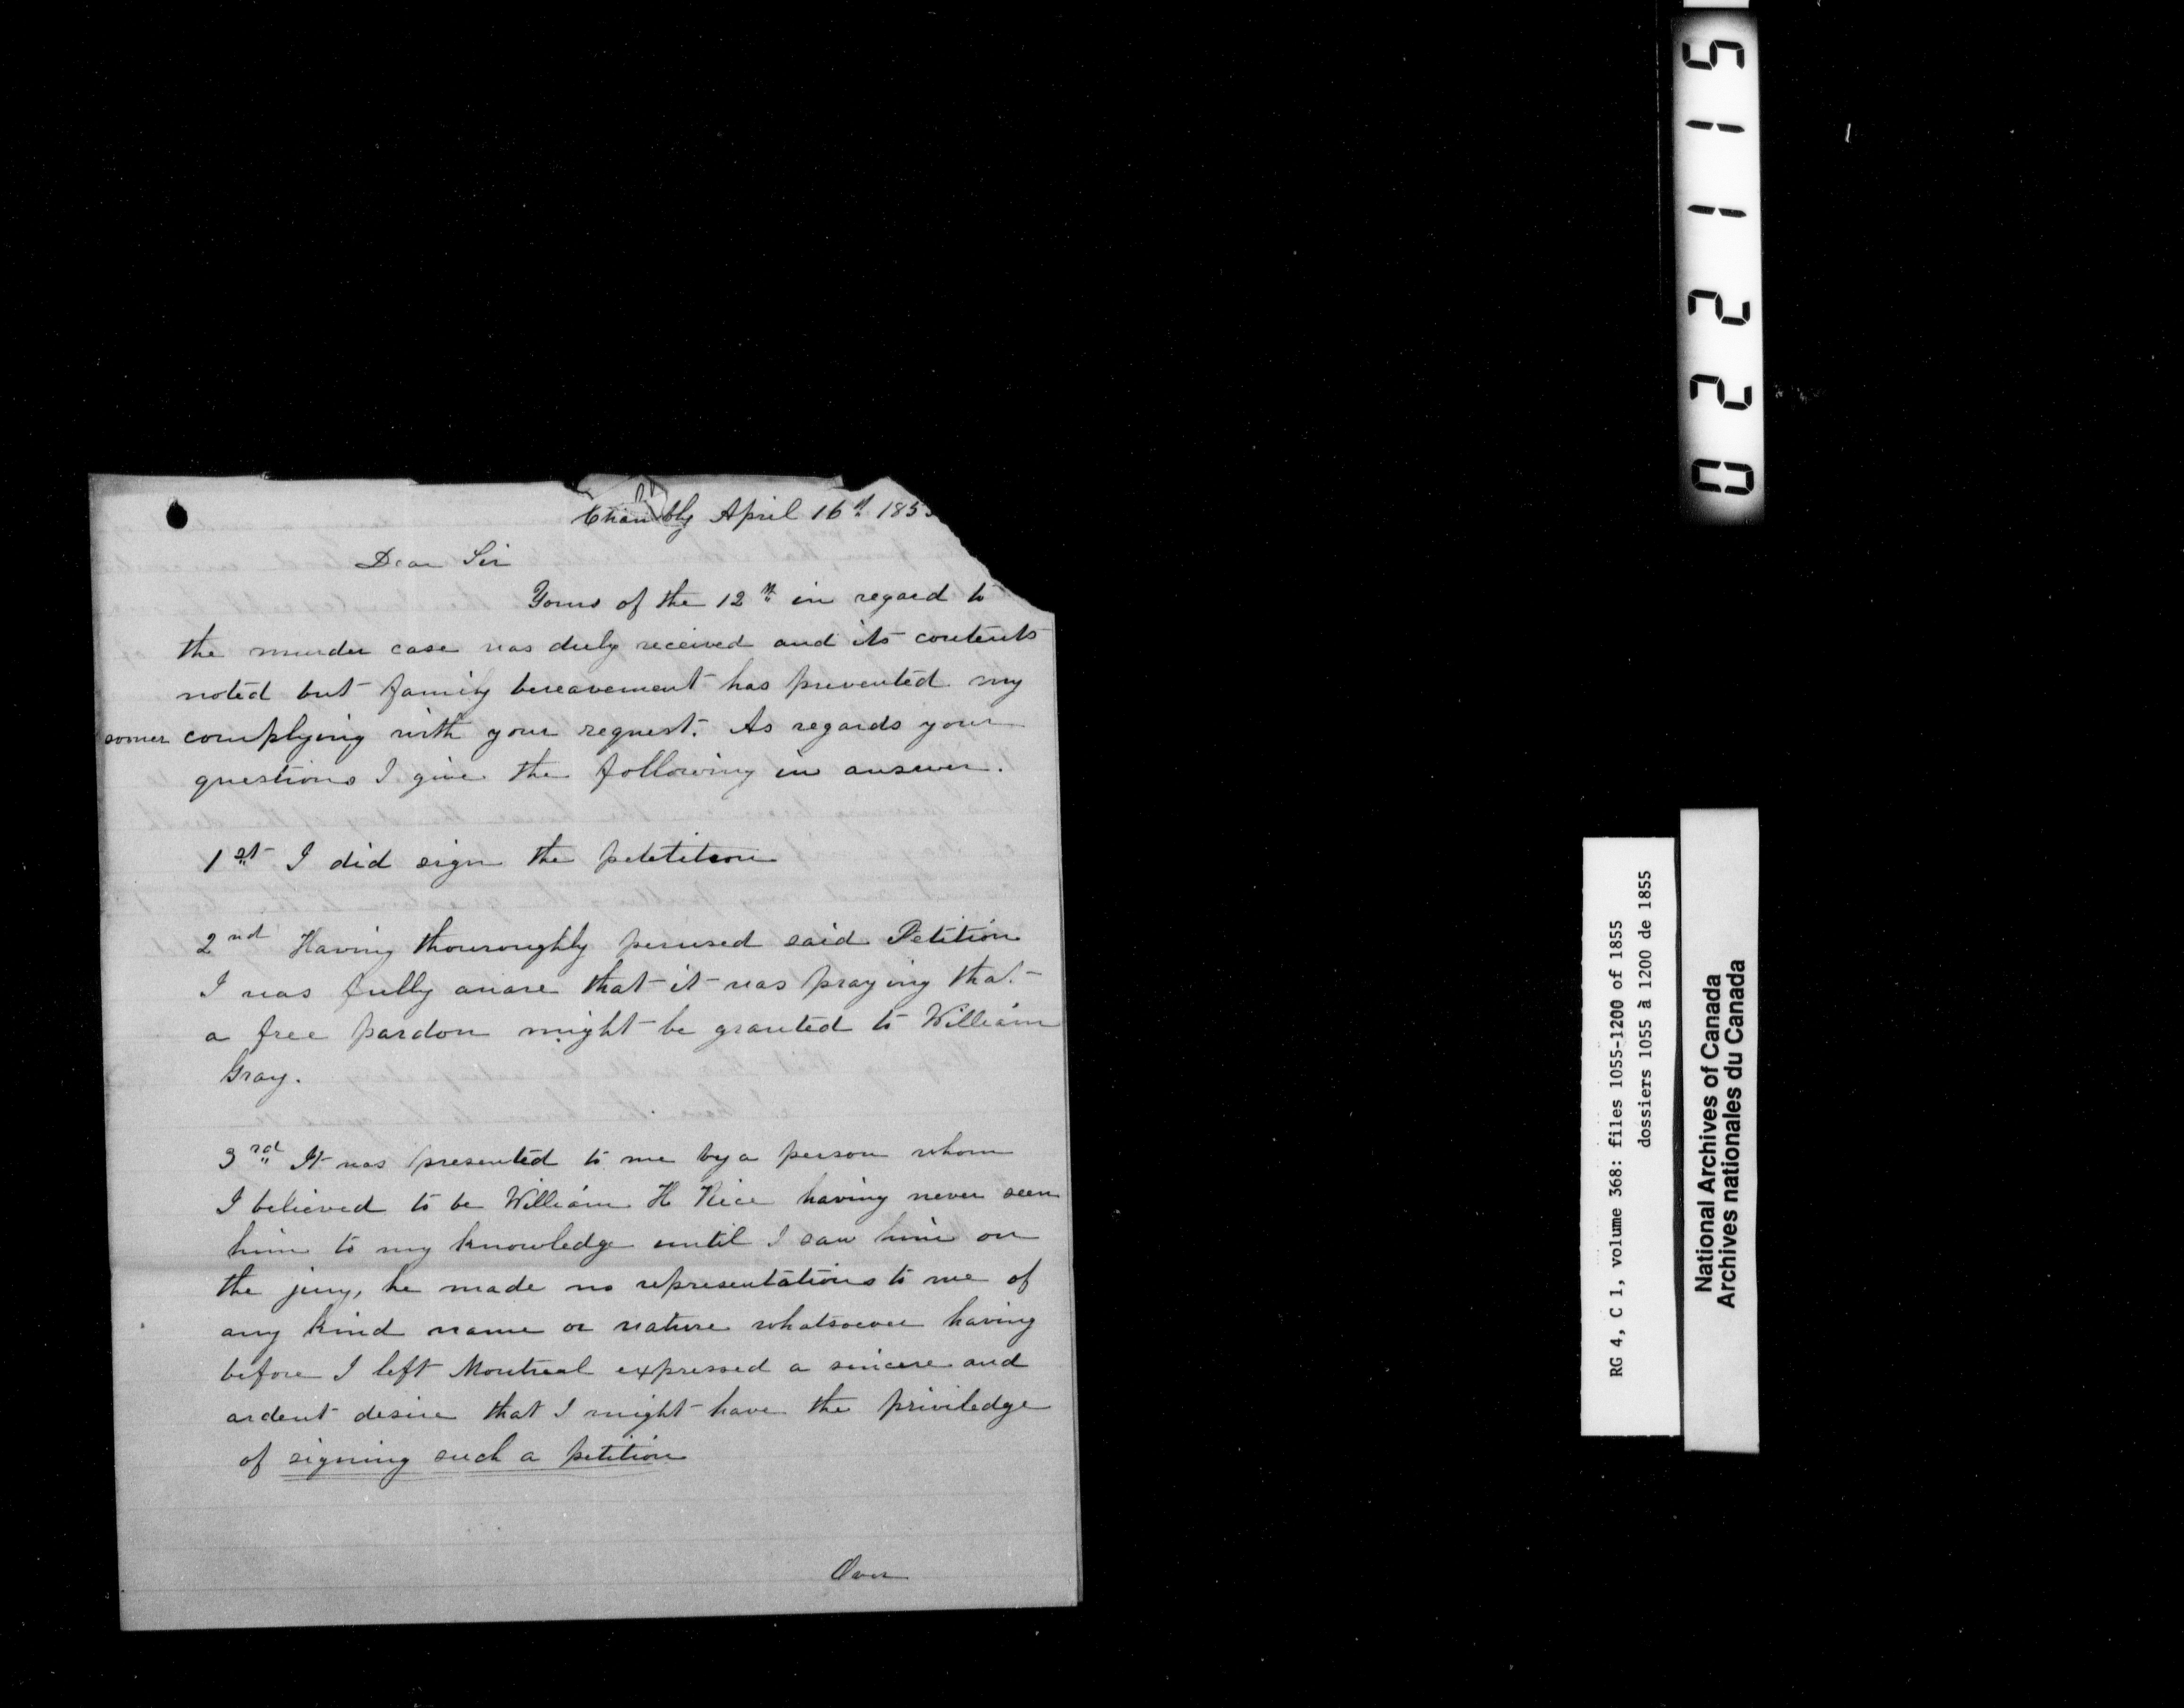 Chambly April 16th 1855
Dear Sir
Yours of the 12th in regard to
the murder case was duly received and its contents
noted but family bereavement has prevented my
sooner complying with your request. As regards your
questions I give the following in answer.
1st I did sign the petetition
2nd Having thouroughly perused said Petition
I was fully aware that it was praying that
a free pardon might be granted to William
Gray.
3rd It was presented to me by a person whom
I believed to be William H Rice having never seen
him to my knowledge until I saw him on
the jury, he made no representations to me of
any kind name or nature whatsoever having
before I left Montreal expressed a sincere and
ardent desire that I might have the priviledge
of signing such a petition
Over
022115
RG 4, C 1, volume 368: files 1055-1200 of 1855
dossiers 1055 à 1200 de 1855
National Archives of Canada
Archives nationales du Canada